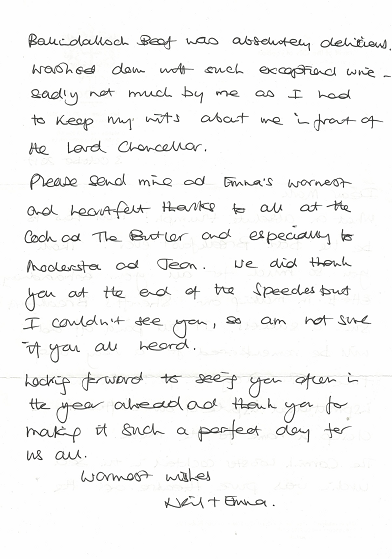 Ballindalloch Beef was absolutely delicious.
Washed down with such exceptional wine -
sadly not much by me as I had
to keep my wits about me in front of
the Lord Chancellor.
Please send mine and Emma's warmest
and heartfelt thanks to all at the
Cook and The Butler and especially to
and Jean. We did thank
you at the end of the speeches but
I couldn't see you, so am not sure
if you all heard.
Looking forward to seeing you often in
the year ahead and thank you for
making it such a perfect day for
us all.
Warmest wishes
Neil + Emma.